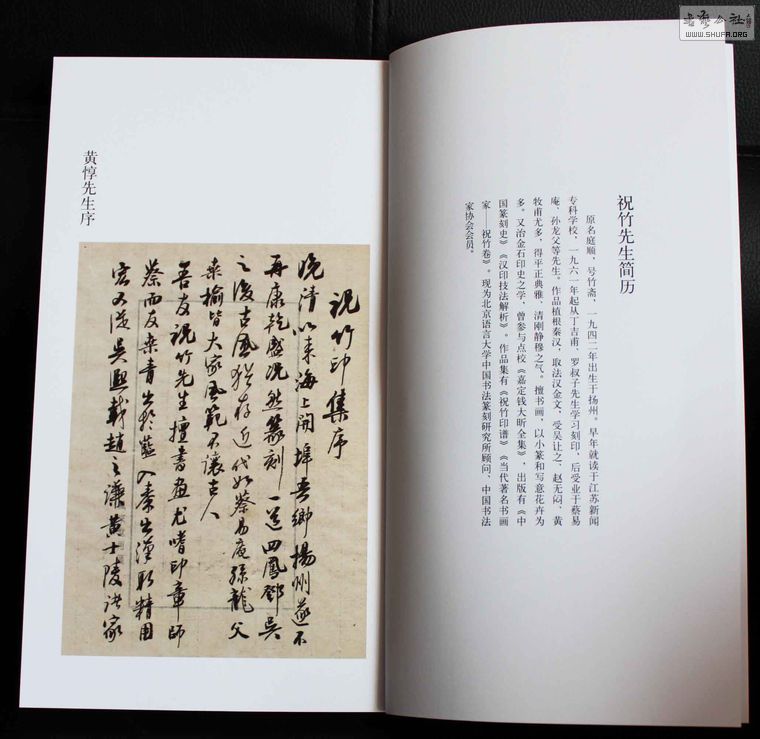 祝竹先生简历
原名庭顺，号竹斋，一九四二年出生于扬州。早年就读于江苏新闻
专科学校，一九六一年起从丁吉甫、罗叔子先生学习刻印，后受业于蔡易
庵、孙龙父等先生。作品植根秦汉，取法汉金文，受吴让之、赵无闷、黄
牧甫尤多，得平正典雅、清刚静穆之气。擅书画，以小篆和写意花卉为
多。又治金石印史之学，曾参与点校《嘉定钱大昕全集》，出版有《中
国篆刻史》《汉印技法解析》。作品集有《祝竹印谱》《当代著名书画
家——祝竹卷》。现为北京语言大学中国书法篆刻研究所顾问、中国书法
家协会会员。
黄惇先生序
祝竹印集序
晚清以来海上開埠吾鄉揚州遂不
再康乾盛况然篆刻一道四鳳鄧吴
之後古風猶存近代如蔡易庵孫龍父
桑榆皆大家風範不讓古人
吾友祝竹先生擅書畫尤嗜印章師
蔡而友桑青出於藍入秦出漢取精用
宏又從吳熙載趙之謙黄士陵諸家
WWW.SHUFA.ORG